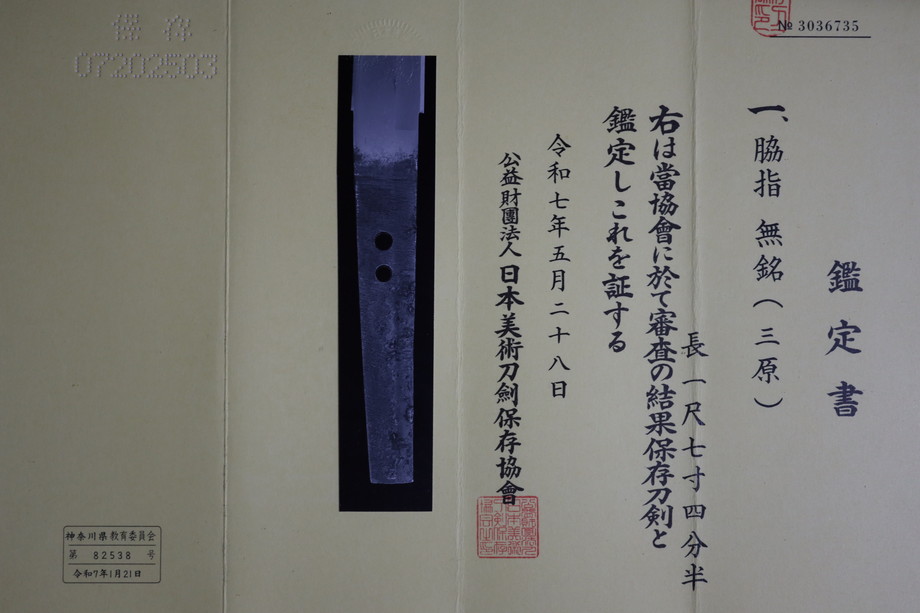 № 3036735
鑑定書
一、脇指 無銘(三原)
長一尺七寸四分半
右は當協會に於て審査の結果保存刀剣と
鑑定しこれを証する
令和七年五月二十八日
公益財團法人 日本美術刀劍保存協會
保存
07202503
神奈川県教育委員会
第 82538 号
令和7年1月21日